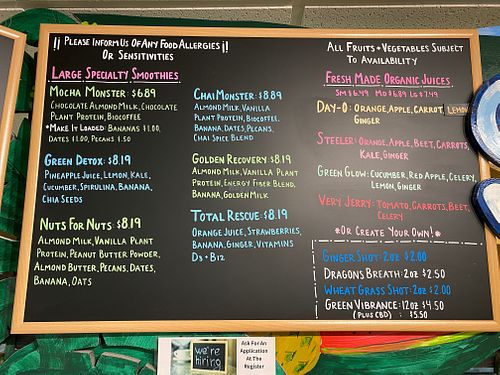 ¡¡ Please Inform Us Of Any Food Allergies ¡¡
Or Sensitivities
Large Specialty Smoothies
Mocha Monster: $6.89
Chocolate Almond Milk, Chocolate
Plant Protein, Biocoffee
*Make It Loaded: Bananas $1.00,
Dates $1.00, Pecans $1.50
Green Detox: $8.19
Pineapple Juice, Lemon, Kale,
Cucumber, Spirulina, Banana,
Chia Seeds
Nuts For Nuts: $8.19
Almond Milk, Vanilla Plant
Protein, Peanut Butter Powder,
Almond Butter, Pecans, Dates,
Banana, Oats
Chai Monster: $8.89
Almond Milk, Vanilla
Plant Protein, Biocoffee,
Banana, Dates, Pecans,
Chai Spice Blend
Golden Recovery $8.19
Almond Milk, Vanilla Plant
Protein, Energy Fiber Blend,
Banana, Golden Milk
Total Rescue: $8.19
Orange Juice, Strawberries,
Banana, Ginger, Vitamins
D3 + B12
All Fruits + Vegetables Subject
To Availability
Fresh Made Organic Juices
Sm $6.49 Md $6.89 Lg $7.49
Day-O: Orange, Apple, Carrot, Lemon
Ginger
Steeler: Orange, Apple, Beet, Carrots,
Kale, Ginger
Green Glow: Cucumber, Red Apple, Celery,
Lemon, Ginger
Very Jerry: Tomato, Carrots, Beet,
Celery
*Or Create Your Own!*
Ginger Shot: 2oz $2.00
Dragons Breath: 2oz $2.50
Wheat Grass Shot: 2oz $2.00
Green Vibrance: 12oz $4.50
(Plus CBD) : $5.50
we're
hiring
Ask For An
Application
At The
Register